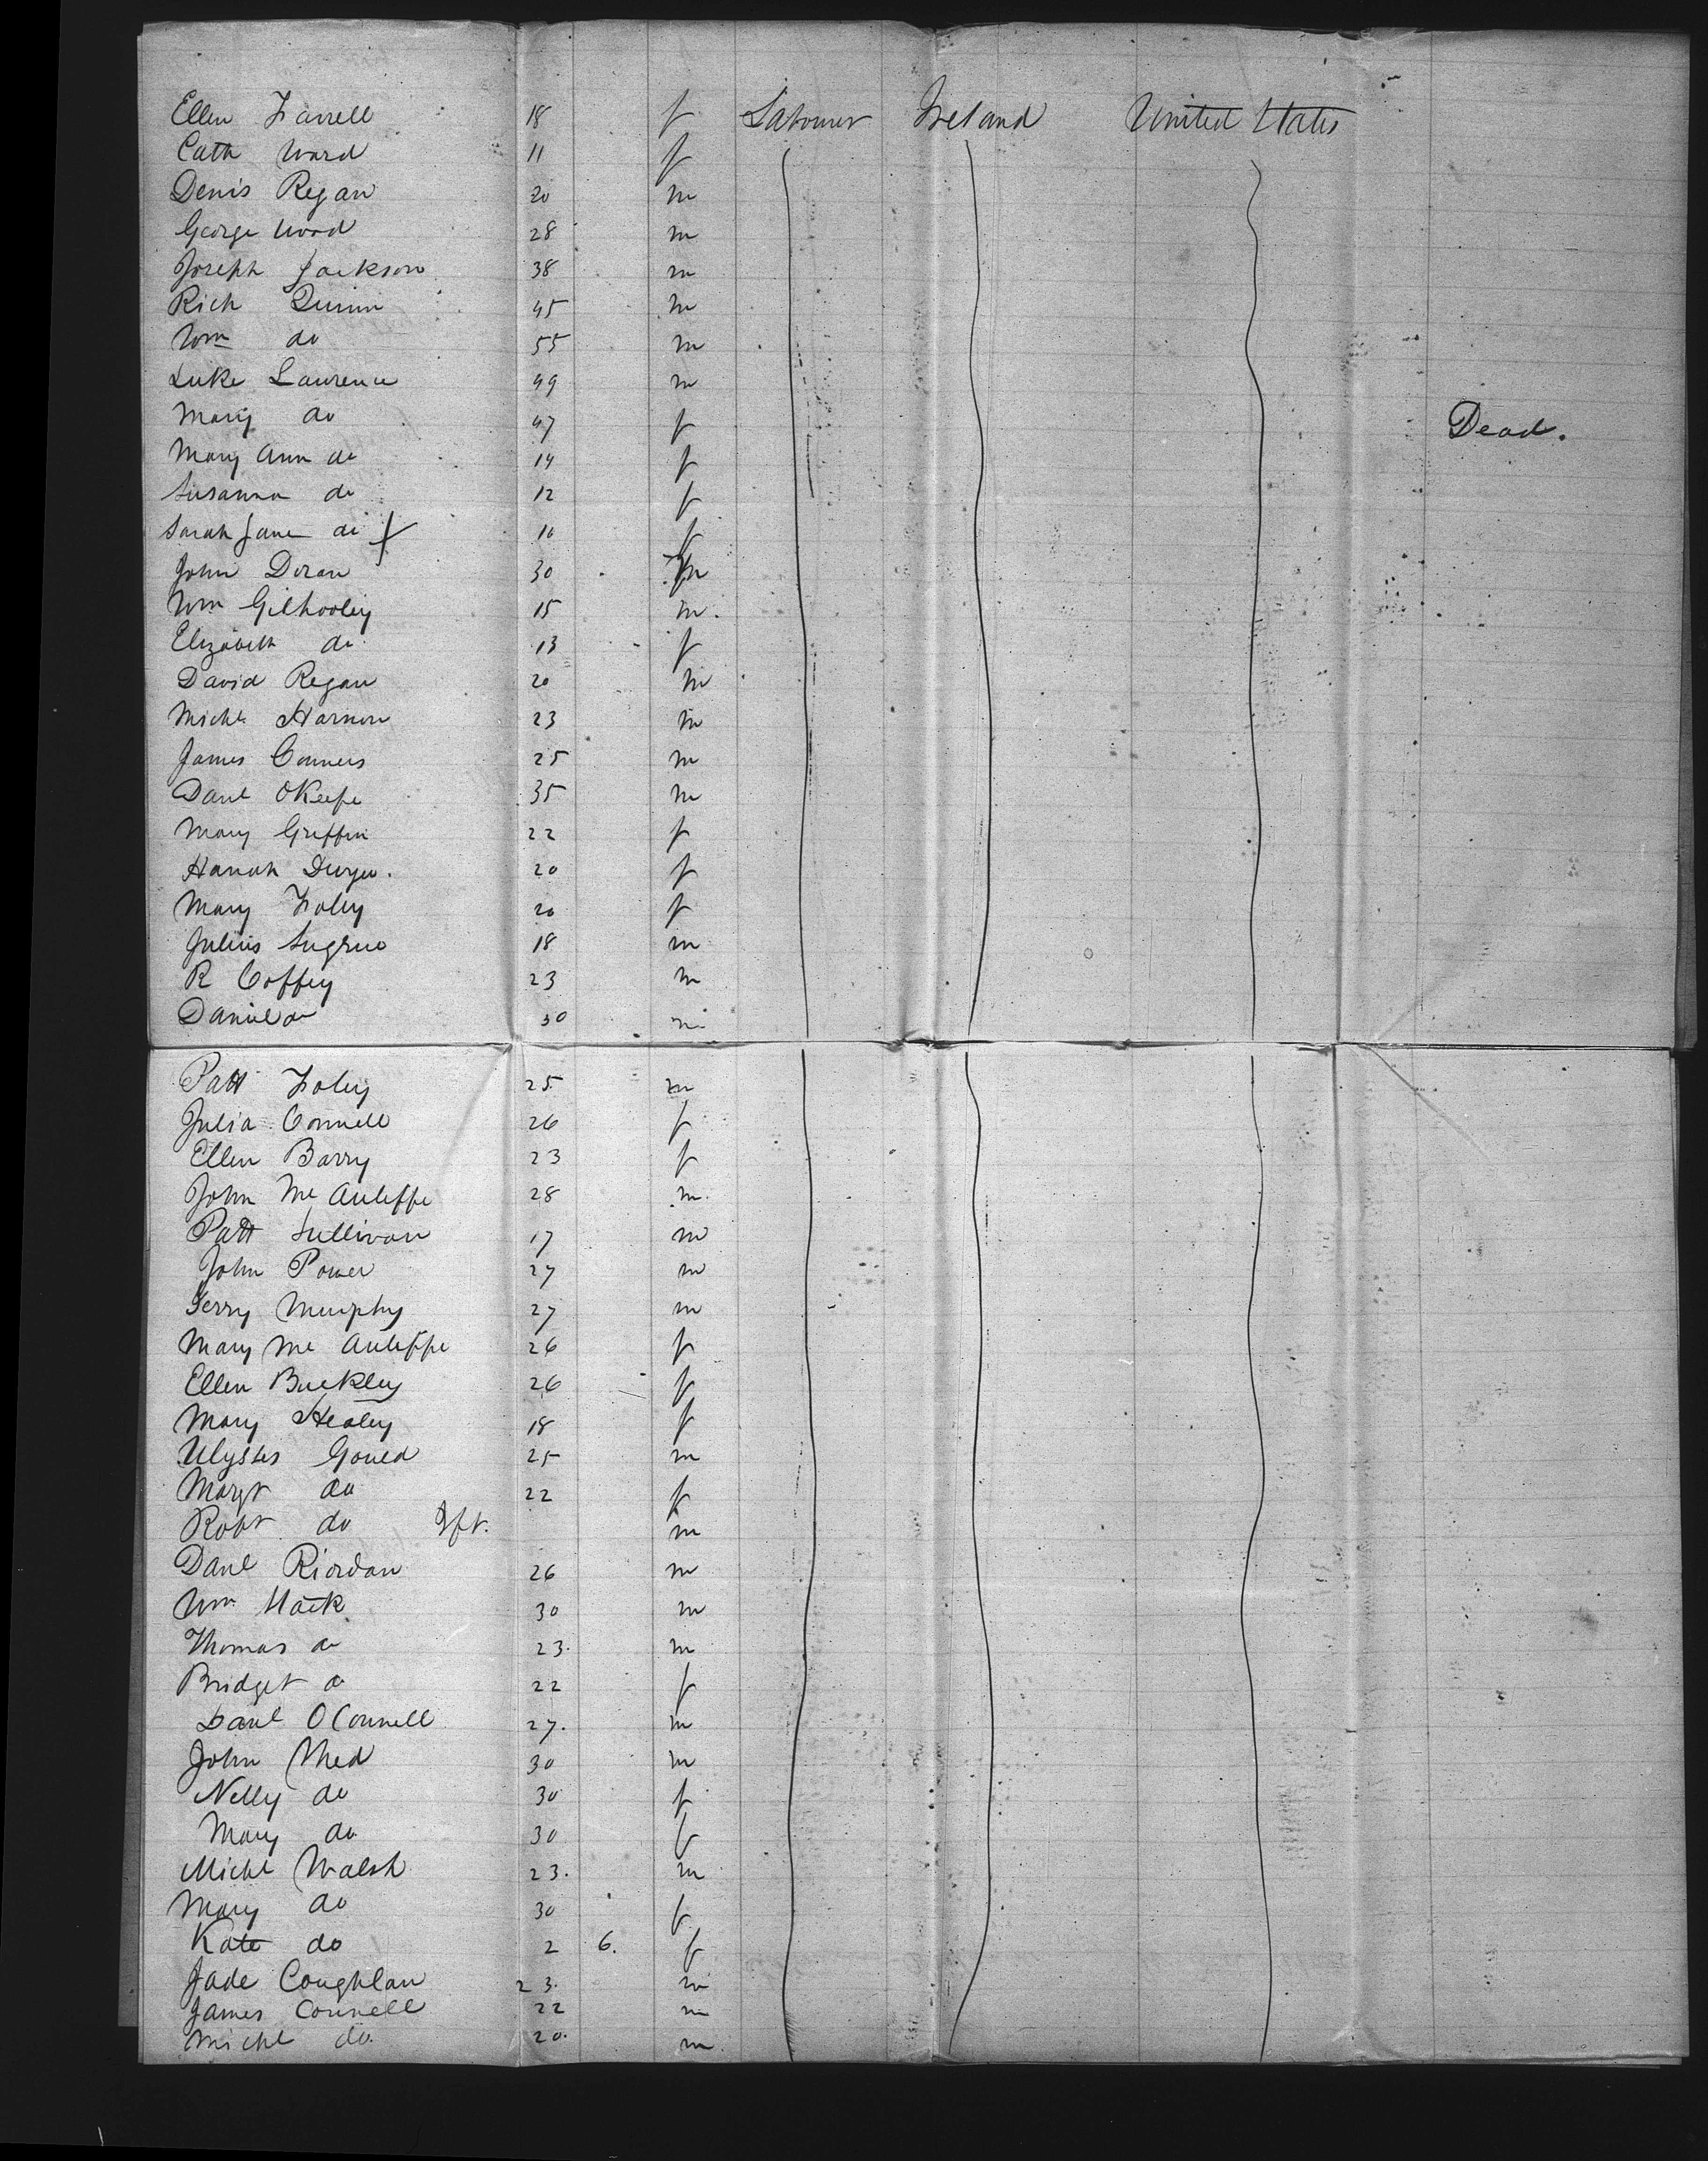 Ellen Farrell 18 f Labourer Ireland United States
Cath Ward 11 f
Denis Regan 20 m
George Wood 28 m
Joseph Jackson 38 m
Rich Quinn 45 m
Wm do 55 m
Luke Lawrence 49 m
Mary do 47 f Dead.
Mary Ann do 14 f
Susanna do 12 f
Sarah Jane do 10 f
John Doran 30 m
Wm Gilhooley 15 m
Elizabeth do 13 f
David Regan 20 m
Michl Harnon 23 m
James Conners 25 m
Danl OKeefe 35 m
Mary Griffin 22 f
Hanah 20 f
Mary Foley 20 f
Julius Sugrue 18 m
R Coffey 23 m
Daniel do 30 m
Patt Foley 25 m
Julia Connell 26 f
Ellen Barry 23 f
John Mc Auliffe 28 m
Patt Sullivan 17 m
John Power 27 m
Jerry Murphy 27 m
Mary Mc Auliffe 26 f
Ellen Buckley 26 f
Mary Healey 18 f
Ulysses Gould 25 m
Margt do 22 f
Robt do Ift. m
Danl Riordan 26 m
Wm Hack 30 m
Thomas do 23. m
Bridget do 22 f
Danl OConnell 27. m
John 30 m
Nelly do 30 f
Mary do 30 f
Michl Walsh 23. m
Mary do 30 f
Kate do 2 6. f
Jade Coughlan 23. m
James Connell 22 m
Michl do 20. m